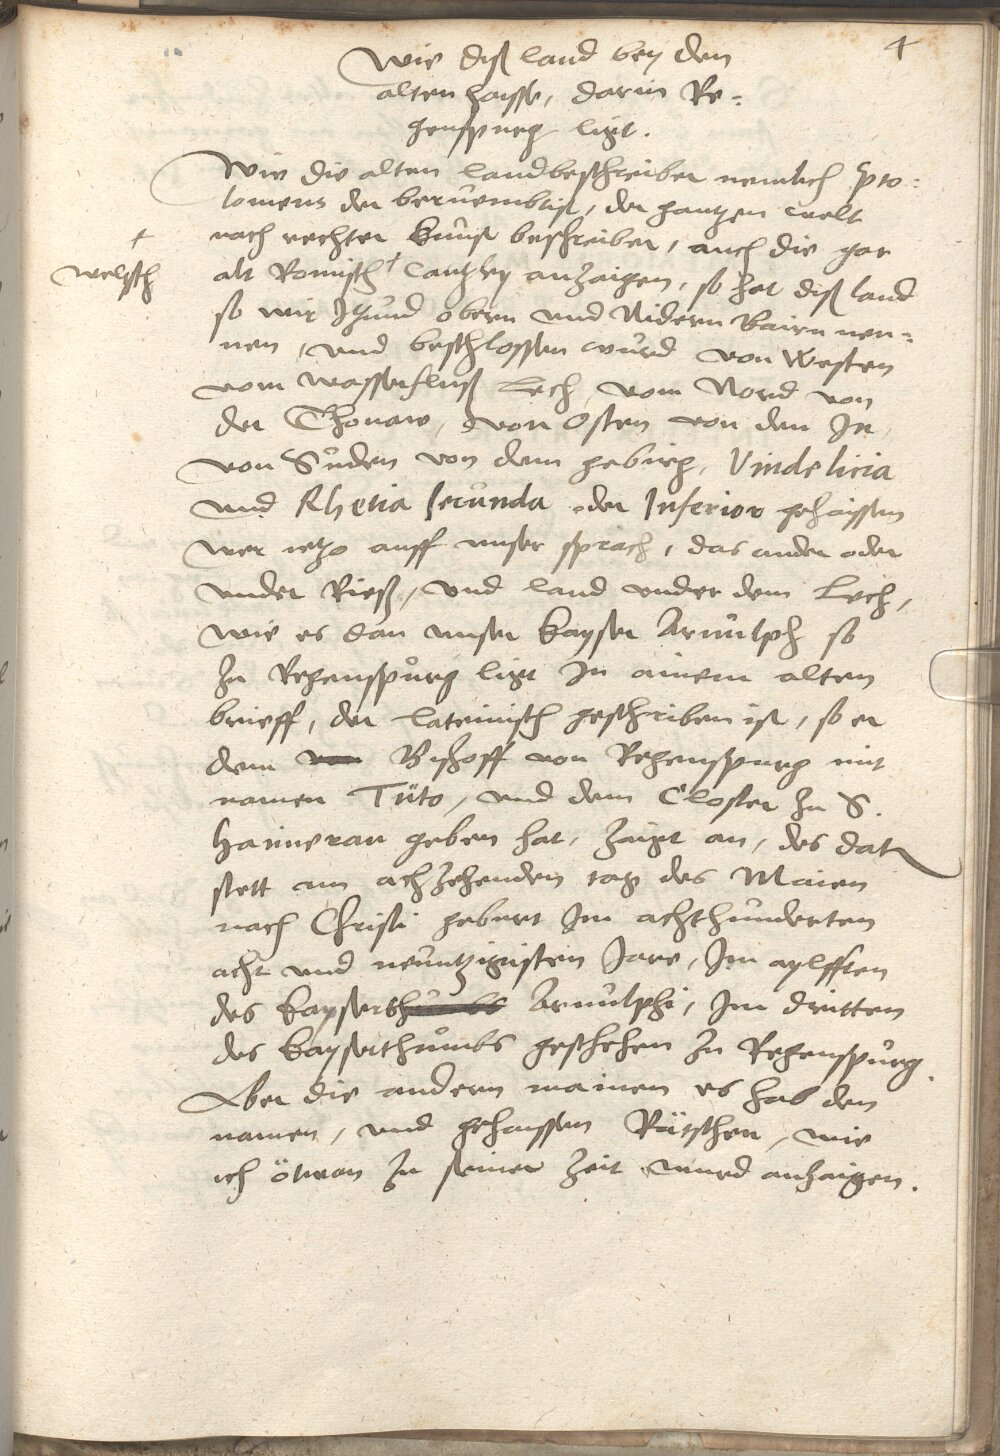 4
Wie diß land bey den
alten haisse, darin Re-
genspurg ligt.
Wie die alten landbeschreiber nemlich Pto-
lomeus der beruembtist, der gantzen welt
nach rechter kunst beschreiber, auch die gar
alt Romisch † Cantzley anzaigen, so hat diß land
† welsch
so wir Jtzund obern und Nidern Bairn nen-
nen, und beschlossen wurd von Westen
vom wasserfluß Lech, vom Nord von
der Thonaw, von Osten von dem In,
von Suden von dem gebirg, Vindelicia
und Rhetia secunda oder Inferior gehaissen
wer ietzo auff unser sprach, das ander oder
under Rieß, und land under dem Lech,
wie es dan unser kayser Arnulph so
zu Regenspurg ligt In ainem alten
brieff, der lateinisch geschriben ist, so er
dem Bischoff von Regenspurg mit
namen Tuto, und dem Closter zu S.
Haimeran geben hat, zaigt an, des dat
stett am achzehenden tag des Maien
nach Christi geburt Im achthunderten
acht und neuntzigisten Jare, Im aylfften
des kayserthumbs Arnulphi, Im dritten
des kayserthumbs geschehen zu Regenspurg.
Aber die andern mainen es hab den
namen, und gehaissen Rätschen, wie
ich ötwan zu seiner zeit wurd anzaigen.